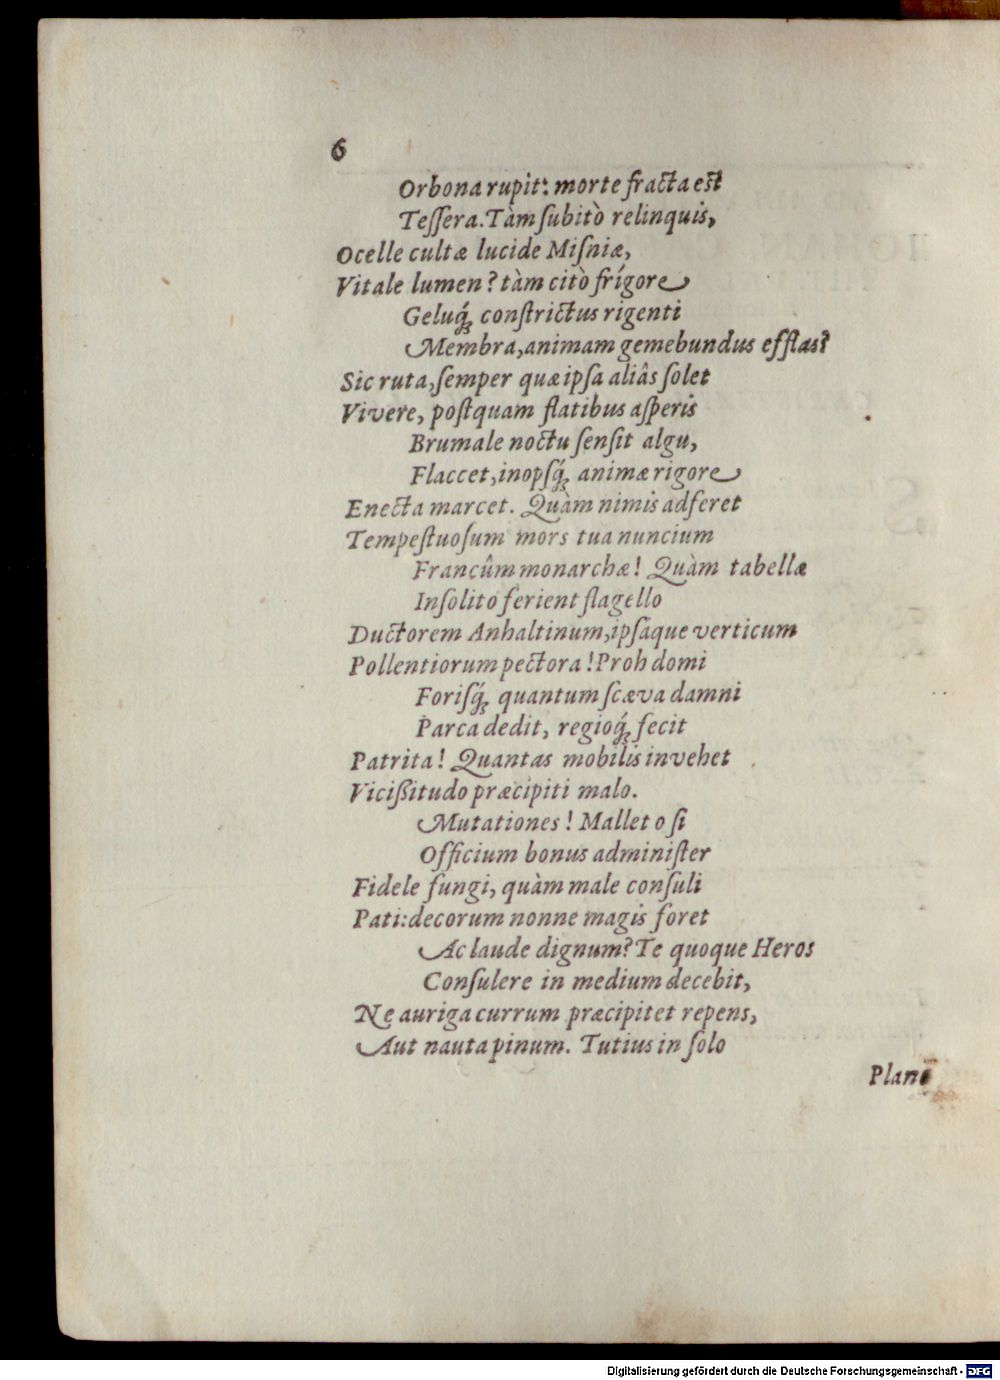 6
Orbona rupit: morte fracta est
Teſſera. Tàm ſubitò relinquis,
Ocelle cultæ lucide Miſniæ,
Vitale lumen? tàm citò frígore
Geluq́; conſtrictus rigenti
Membra, animam gemebundus efflas?
Sic ruta, ſemper quæ ipſa aliâs ſolet
Vivere, poſtquam flatibus aſperis
Brumale noctu ſenſit algu,
Flaccet, inopſq́; animæ rigore
Enecta marcet. Quàm nimis adferet
Tempeſtuoſum mors tua nuncium
Francûm monarchæ! Quàm tabellæ
Inſolito ferient flagello
Ductorem Anhaltinum, ipſaque verticum
Pollentiorum pectora! Proh domi
Foriſq́; quantum ſcæva damni
Parca dedit, regioq́; fecit
Patrita! Quantas mobilis invehet
Viciſsitudo præcipiti malo.
Mutationes! Mallet o ſi
Officium bonus adminiſter
Fidele fungi, quàm male conſuli
Pati: decorum nonne magis foret
Ac laude dignum? Te quoque Heros
Conſulere in medium decebit,
Ne auriga currum præcipitet repens,
Aut nauta pinum. Tutius in ſolo
Plane
Digitalisierung gefördert durch die Deutsche Forschungsgemeinschaft - DFG